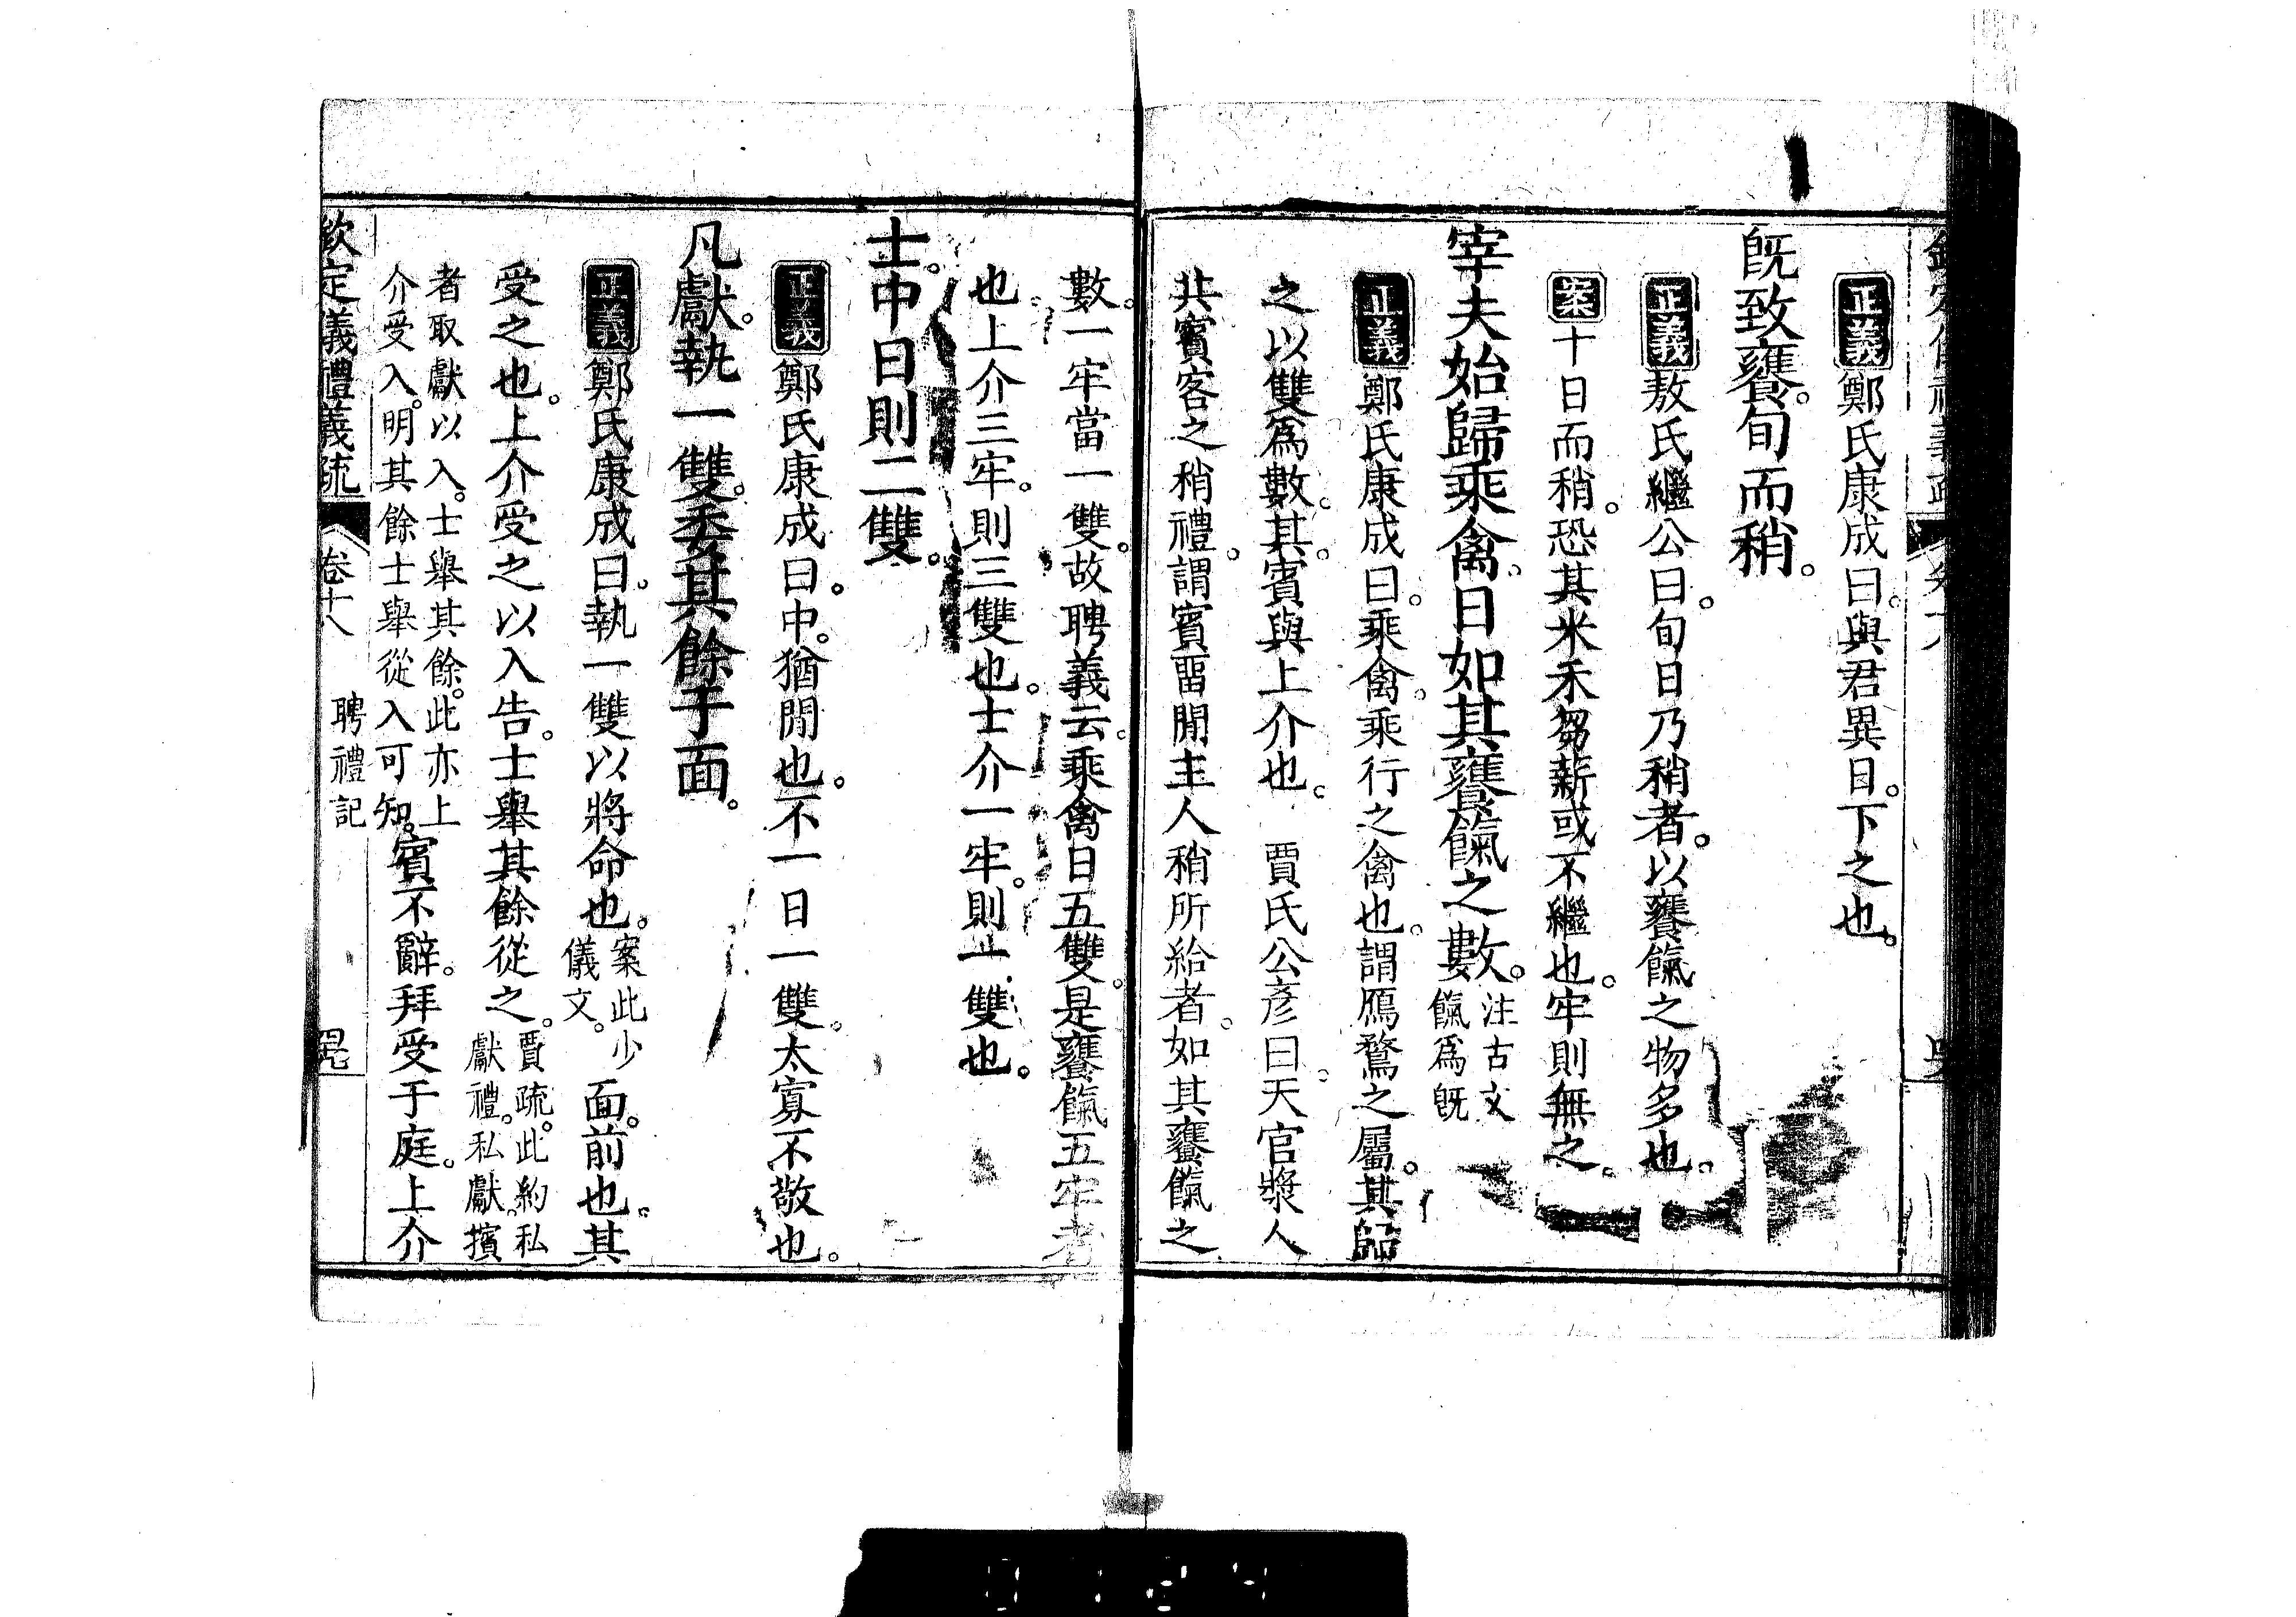 正義鄭氏康成曰。與君異日。下之也。
既致饔。旬而稍。
正義敖氏繼公曰。旬日乃稍者。以饔餼之物多也。
案十日而稍。恐其米禾芻薪或不繼也。牢則無之。
宰夫始歸乘禽。日如其饔餼之數。注古文餼爲旣
正義鄭氏康成曰。乘禽。乘行之禽也。謂鴈鶩之屬。其歸
之以雙爲數。其。賓與上介也。 賈氏公彥曰。天官漿人
共賓客之稍禮。謂賓畱閒主人稍所給者。如其饔餼之
數。一牢當一雙。故聘義云。乘禽日五雙。是饔餼五牢者
也。上介三牢。則三雙也。士介一牢。則一雙也。
士。中日則二雙。
正義鄭氏康成曰。中。猶閒也。不一日一雙。太寡不敬也。
凡獻。執一雙。委其餘于面。
正義鄭氏康成曰。執一雙以將命也。案此少儀文。面。前也。其
受之也。上介受之以入告。士舉其餘從之。賈疏。此約私獻禮。私獻。擯
者取獻以入。士舉其餘。此亦上介受入。明其餘士舉從入可知。賓不辭。拜受于庭。上介
欽定儀禮義疏 卷十八 聘禮記